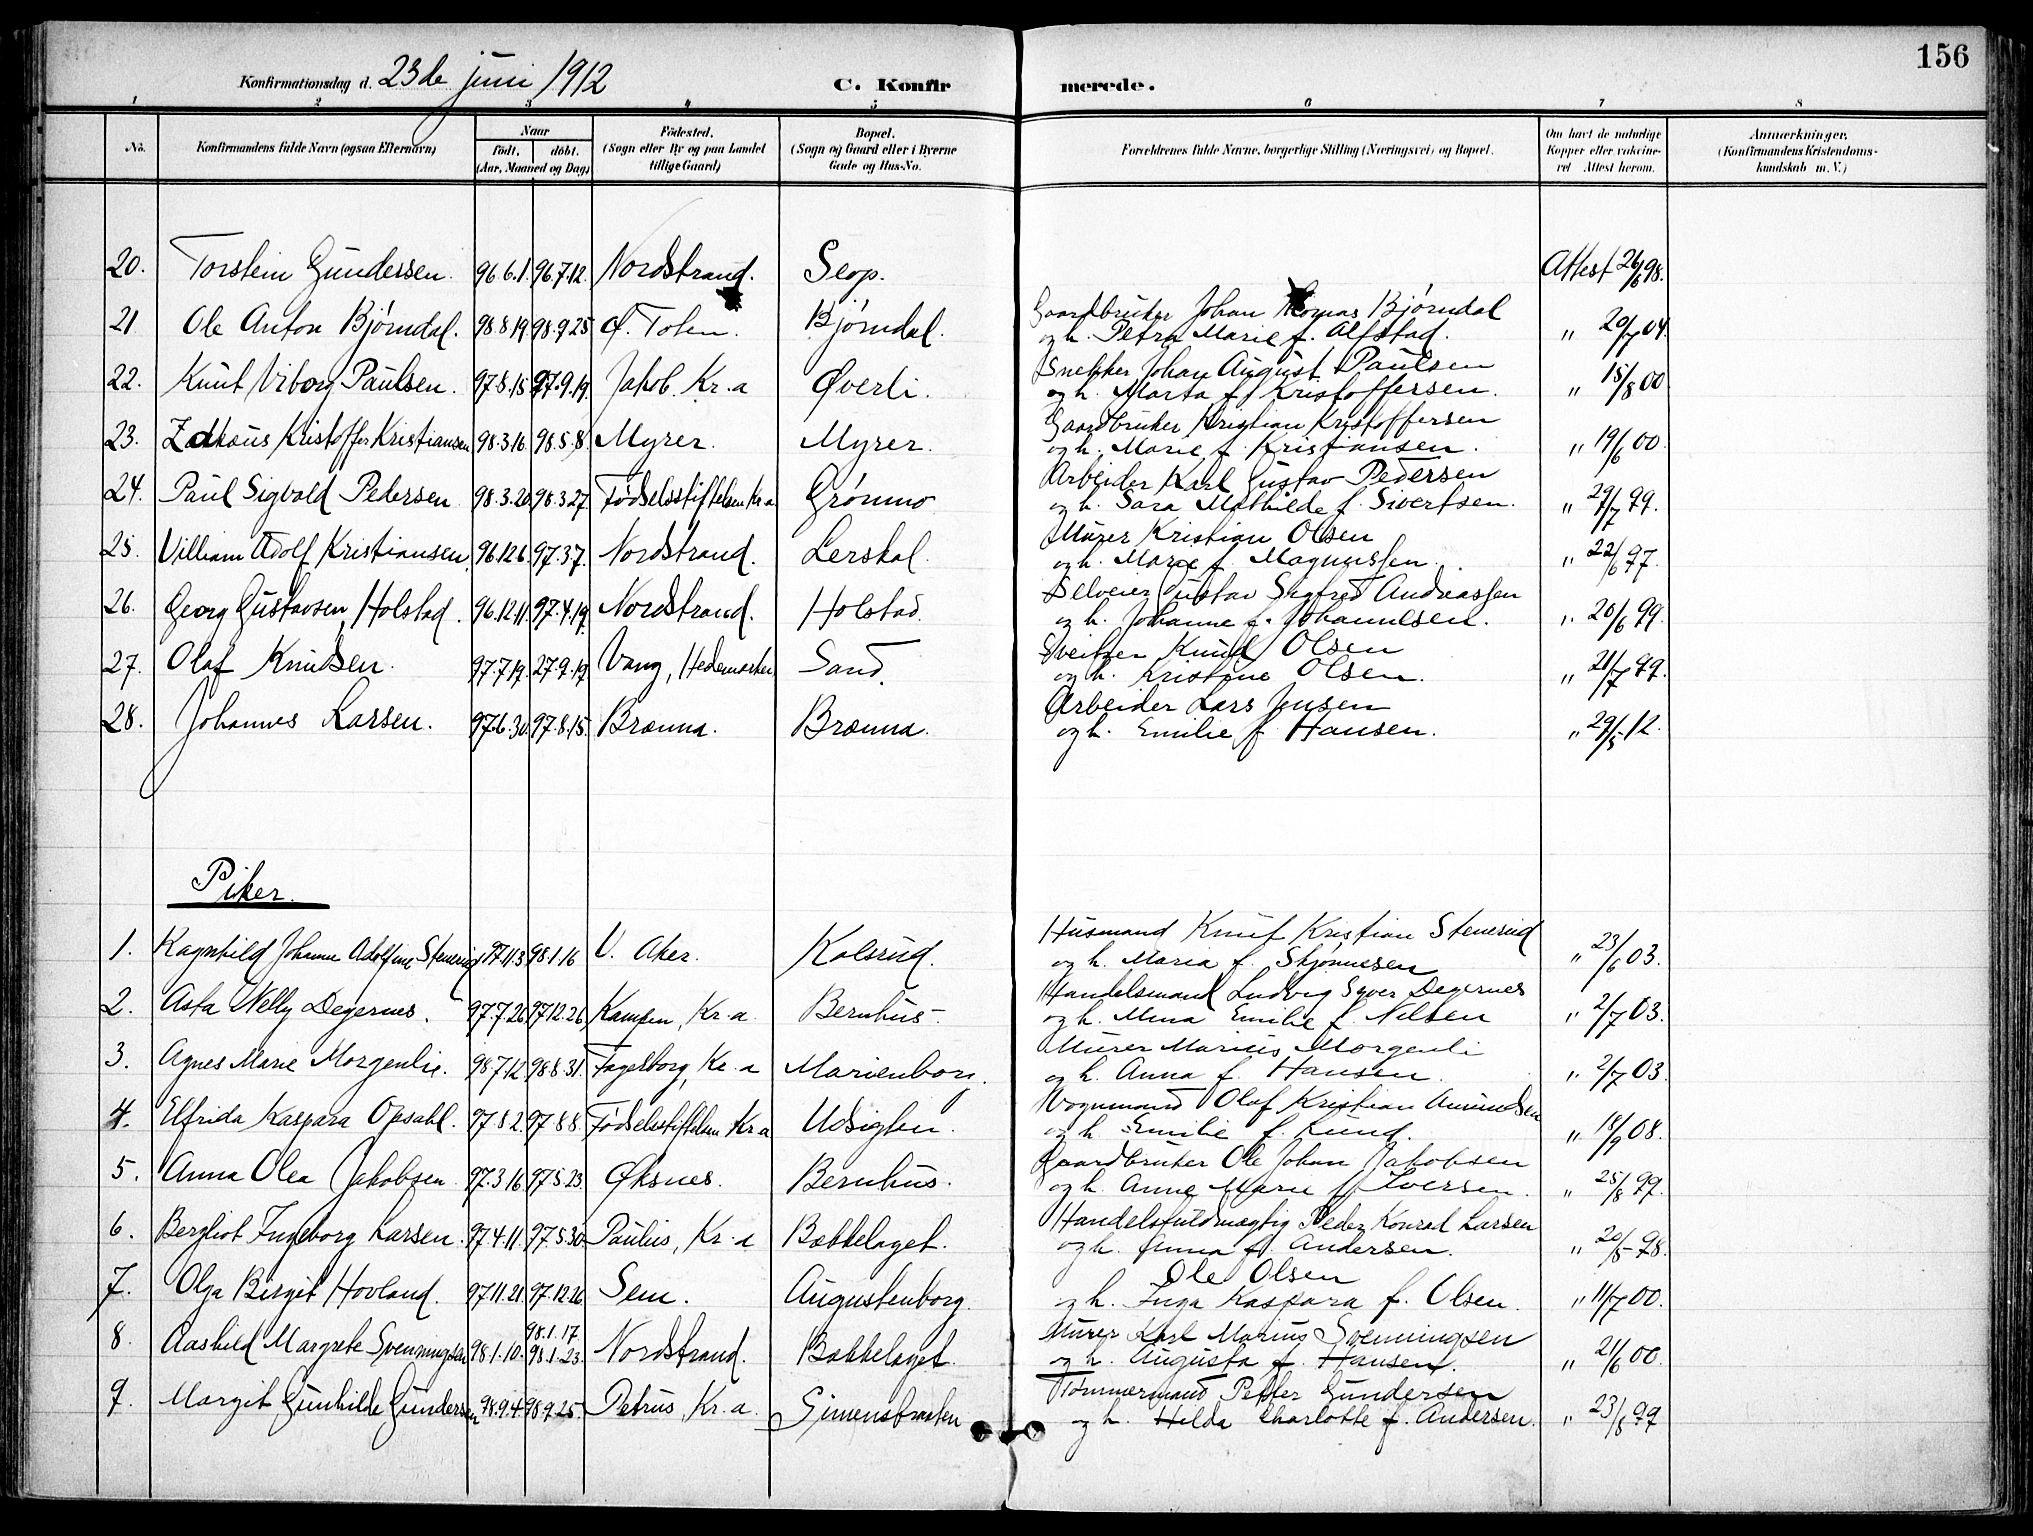 156
Konfirmationsdag d. 23de juni 1912 C. Konfirmerede.
1 2 3 4 5 6 7 8
No. Konfirmandens fulde Navn (ogsaa Efternavn) Naar født, døbt. (Aar, Maaned og Dag) Fødested. (Sogn eller By og paa Landet tillige Gaard) Bopæl. (Sogn og Gaard eller i Byerne Gade og Hus-No. Forældrenes fulde Navne, borgerlige Stilling (Næringsvei) og Bopæl. Om havt de naturlige Kopper eller vakcineret Attest herom. Anmærkninger. (Konfirmandens Kristendomskundskab m. V.)
20. Torstein Gundersen. 96.6.1. 96.7.12. Nordstrand. Seop. Attest 26/6 98.
21 Ole Anton Bjørndal. 98.8.19. 98.9.25 Ø. Toten. Bjørndal. Gaardbruker Johan Thomas Bjørndal
og h. Petra Marie f. Alfstad. " 20/7 04.
22. Knut Viborg Paulsen. 97.8.15 97.9.19. Jakob. Kr.a Øverli. Snekker Johan August Paulsen
og h. Marta f. Kristoffersen. " 15/8 00
23. Zakæus Kristoffer Kristiansen 98.3.16. 98.5.8. Myrer. Myrer. Gaardbruker Kristian Kristoffersen
og h. Marie f. Kristiansen. " 19/6 00.
24. Paul Sigvald Pedersen 98.3.20. 98.3.27. Fødselsstiftelsen Kr.a Grønmo. Arbeider Karl Gustav Pedersen
og h. Sara Mathilde f. Sivertsen. " 29/7 99.
25. Villiam Adolf Kristiansen. 96.12.6. 97.3.7. Nordstrand. Lerskal. Murer Kristian Olsen
og h. Marie f. Magnussen. " 22/6 97.
26. Georg Gustavsen, Holstad. 96.12.11. 97.4.19. Nordstrand. Holstad. Selveier Gustav Sigfred Andreassen
og h. Johanne f. Johannesen. " 20/6 99.
27. Olaf Knudsen. 97.7.19. 27.9.19. Vang, Hedemarken Sand. Sveitser Knud Olsen
og h. Kristine Olsen. " 21/7 99.
28. Johannes Larsen. 97.6.30. 97.8.15. Brænna. Brænna. Arbeider Lars Jensen
og h. Emilie f. Hansen. " 29/5 12.
Piker.
1. Ragnhild Johanne Adolfine Stenerud 97.11.3 98.1.16 V. Aker. Kolsrud. Husmand Knut Kristian Stenerud
og h. Maria f. Skjønnesen " 23/6 03.
2. Asta Nelly Degernes. 97.7.26 97.12.26 Kampen, Kr.a. Bernhus. Handelsmand Ludvig Syver Degernes
og h. Mina Emilie f. Nilsen " 2/7 03.
3. Agnes Marie Morgenlie. 98.7.12. 98.8.31. Fagerborg, Kr.a Marienborg. Murer Marius Morgenli
og h. Anna f. Hansen. " 2/7 03.
4. Elfrida Kaspara Opsahl. 97.8.2. 97.8.8. Fødselsstiftelsen Kr.a Udsigten. Vognmand Olaf Kristian Amundsen
og h. Emilie f. Lund. " 18/9 08.
5. Anna Olea Jakobsen 97.3.16. 97.5.23. Øksnes. Bernhus. Gaardbruker Ole Johan Jakobsen
og h. Anne Marie f. Iversen. " 25/8 99.
6. Bergliot Ingeborg Larsen. 97.4.11. 97.5.30. Paulus, Kr.a Bækkelaget. Handelsfuldmægtig Peder Konrad Larsen
og h. Anna f. Andersen. " 20/5 98.
7. Olga Birgit Hovland. 97.11.21. 97.12.26 Sem. Augustenborg. Ole Olsen
og h. Inga Kaspara f. Olsen. " 11/7 00.
98.1.17
8. Aashild Margrete Svenningsen 98.1.10. 98.1.23. Nordstrand. Bækkelaget. Murer Karl Marius Svenningsen
og h. Augusta f. Hansen. " 21/6 00.
9. Margit Gunhilde Gundersen 98.9.4. 98.9.25. Petrus, Kr.a. Simensbraaten Tømmermand Petter Gundersen
og h. Hilda Charlotte f. Andersen. " 23/8 99